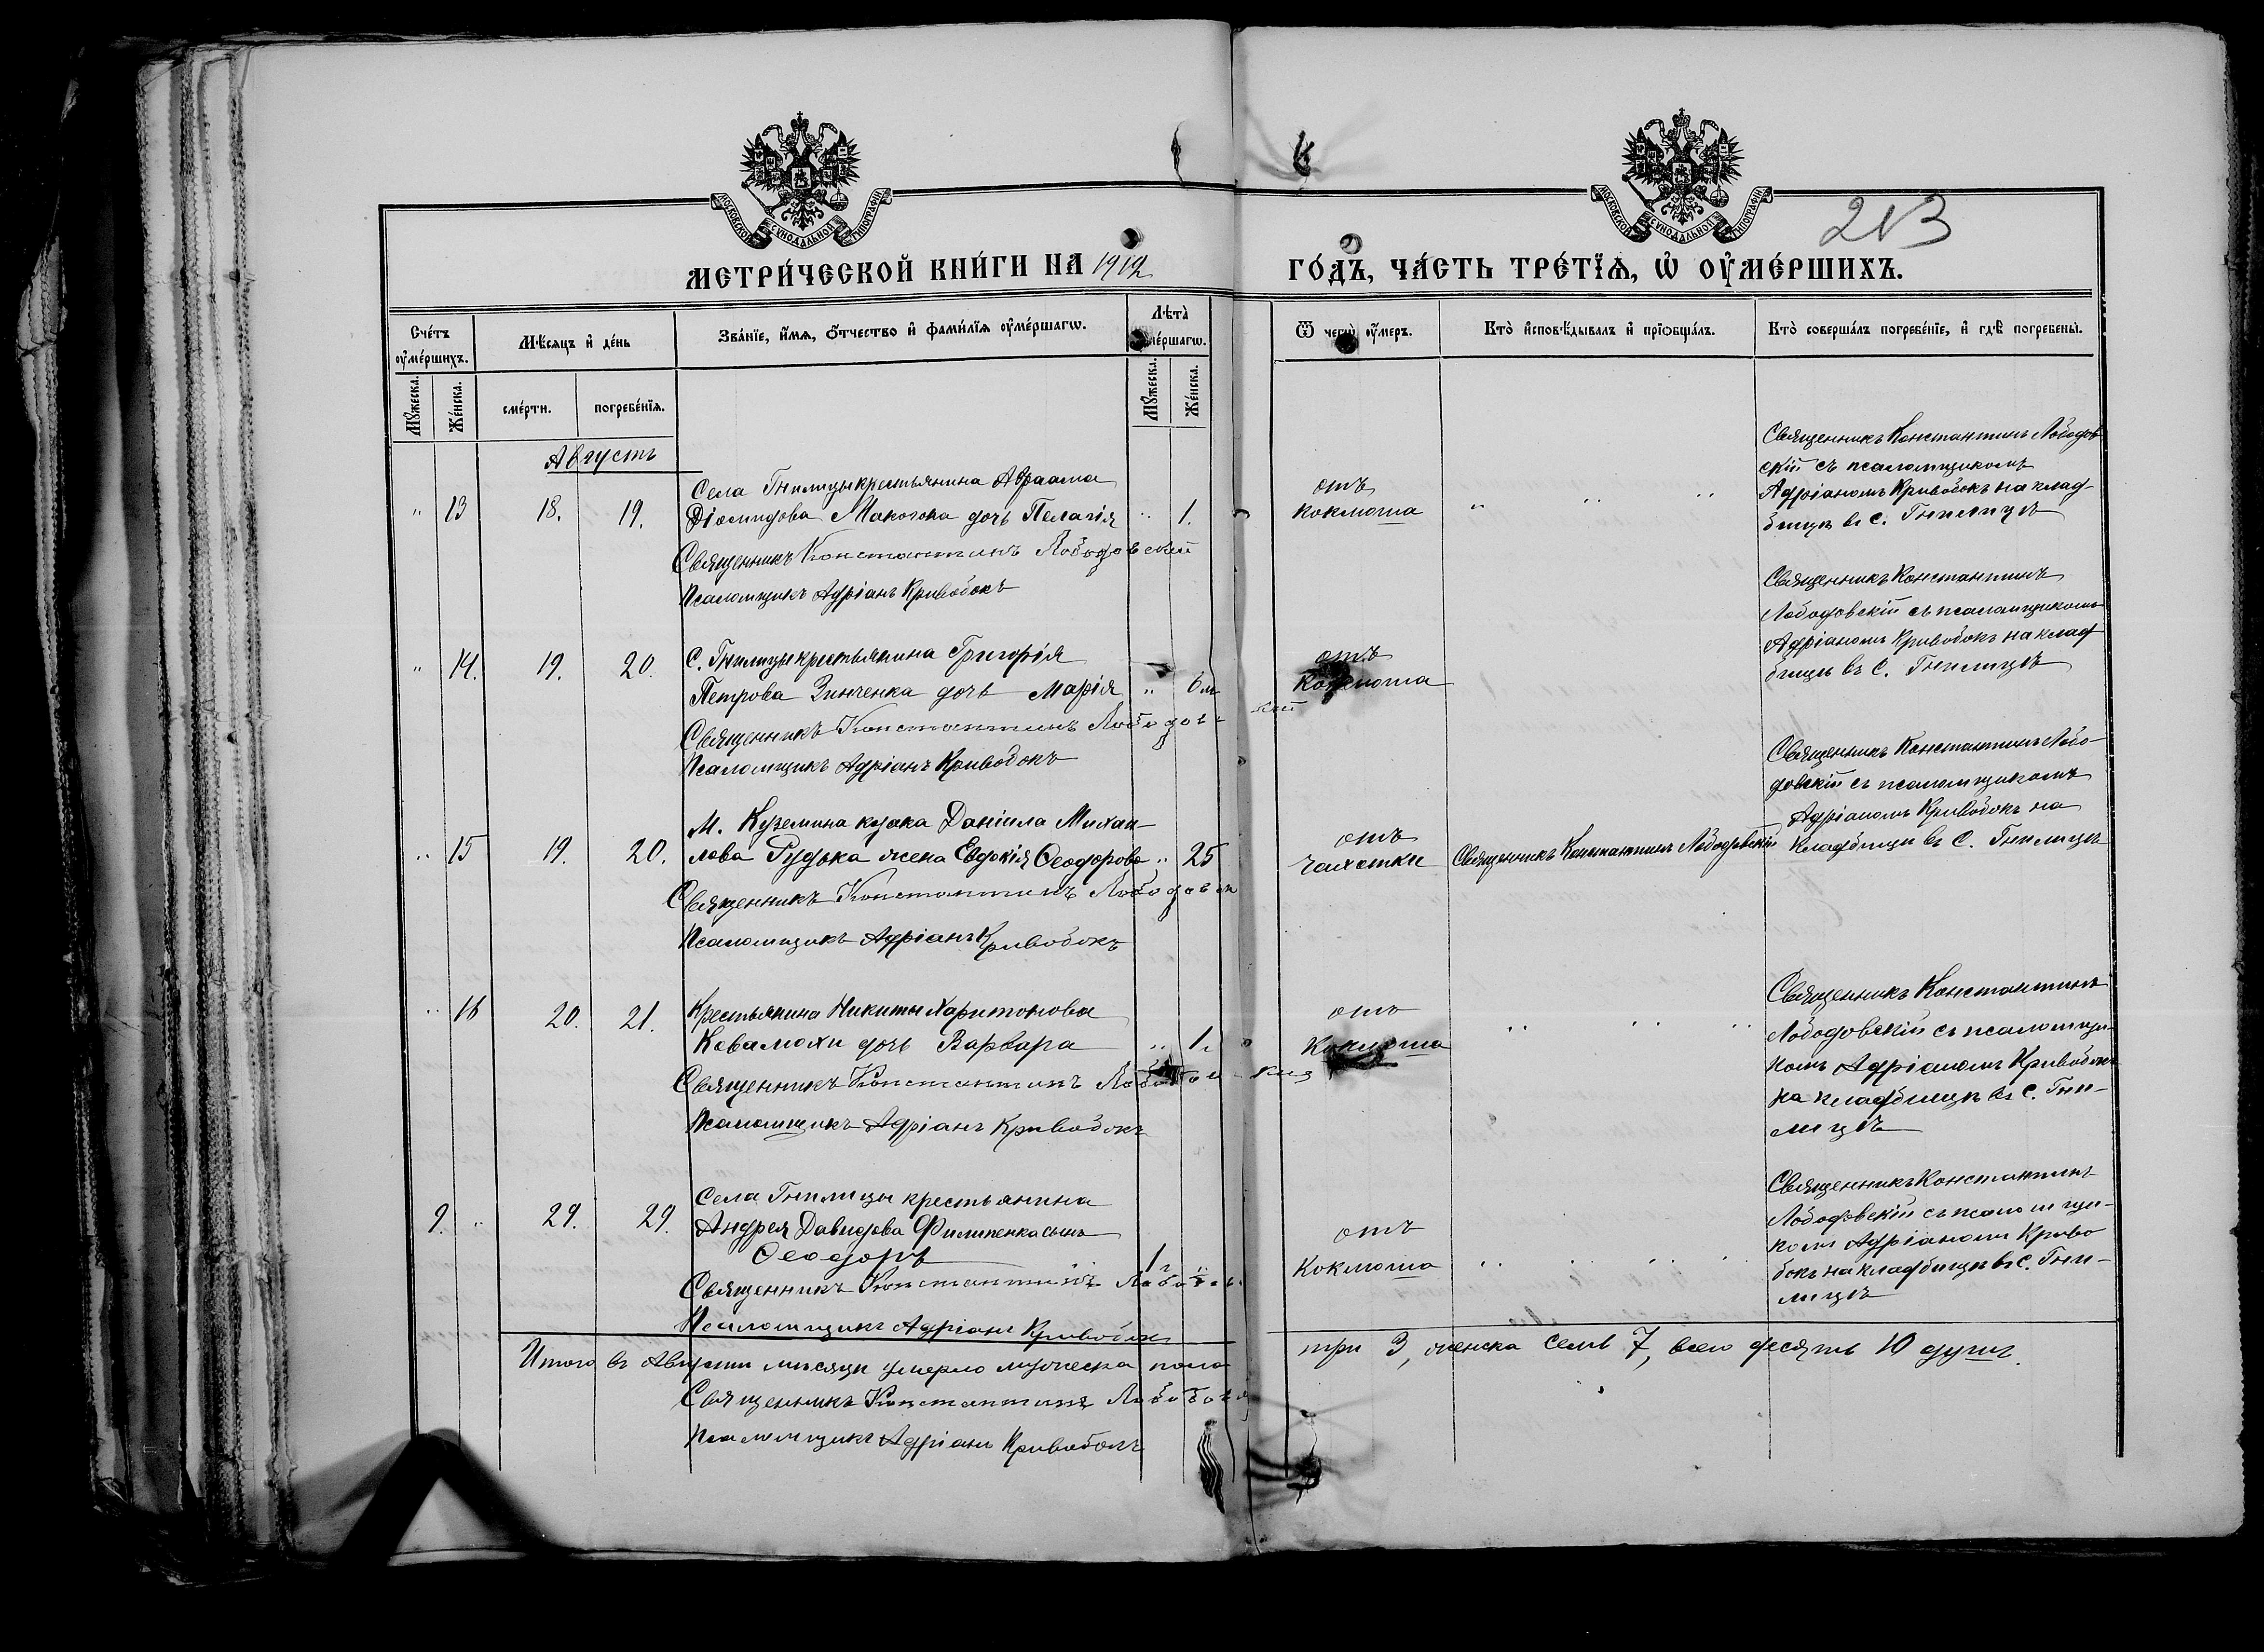 213
МОСКОВСКОЙ СУНОДАЛЬНОЙ ТИПОГРАФІИ
МОСКОВСКОЙ СУНОДАЛЬНОЙ ТИПОГРАФІИ
МЕТРИ́ЧЕСКОЙ КНИ́ГИ НА 1912
ГО́ДЪ, ЧА́СТЬ ТРЕ́ТЇѦ, Ѡ҆ ОУ҆МЕ́РШИХЪ.
Сче́тъ оу҆ме́ршихъ.
Мѣ́сяцъ и҆ де́нь
Зва́нїе, и҆́мѧ, ѻ҆́тчество и҆ фами́лїѧ оу҆ме́ршагѡ.
Лѣ́та оу҆ме́ршагѡ.
Ѿ чегѡ̀ оу҆́меръ.
Кто̀ и҆сповѣ́дывалъ и҆ прїѻбща́лъ.
Кто̀ соверша́лъ погребе́нїе, и҆ гдѣ̀ погребены̀.
Мꙋ́жеска.
Же́нска.
сме́рти.
погребе́нїѧ.
Мꙋ́жеска.
Же́нска.
Августъ
Села Гнилицы крестьянина Авраама
" 13 18. 19. Діомидова Макогона дочь Пелагія " 1.
Священникъ Константинъ Лободовскій
Псаломщикъ Адріанъ Кривобокъ
отъ
коклюша
" " "
Священникъ Константинъ Лободов
скій съ псаломщикомъ
Адріаномъ Кривобокъ на клад-
бищѣ въ с. Гнилицѣ
С. Гнилицы крестьянина Григорія
" 14. 19. 20. Петрова Зинченка дочь Марія " 6 м
Священникъ Константинъ Лободовскій
Псаломщикъ Адріанъ Кривобокъ
отъ
Коклюша
Священникъ Константинъ
Лободовскій съ псаломщикомъ
Адріаномъ Кривобокъ на клад
бищѣ въ с. Гнилицѣ
М. Куземина козака Даніила Михаи-
" 15 19. 20. лова Рудька жена Евдокія Ѳеодорова " 25
Священникъ Константинъ Лободовск
Псаломщикъ Адріанъ Кривобокъ
отъ
чахотки
Священникъ Константинъ Лободовскій
Священникъ Константинъ Лобо-
довскій съ псаломщикомъ
Адріаномъ Кривобокъ на
кладбищѣ въ с. Гнилицѣ
" 16 20. 21. Крестьянина Никиты Харитонова
Ковалюхи дочь Варвара " 1.
Священникъ Константинъ Лободовскій
Псаломщикъ Адріанъ Кривобокъ
отъ
Коклюша
" " "
Священникъ Константинъ
Лободовскій съ псаломщи-
комъ Адріаномъ Кривобокъ
на кладбищѣ въ с. Гни-
лицѣ
Села Гнилицы крестьянина
9. " 29. 29. Андрея Давидова Филипенка сынъ
Ѳеодоръ 1 г. "
Священникъ Константинъ Лободов
Псаломщикъ Адріанъ Кривобокъ
отъ
Коклюша
" " " "
Священникъ Константинъ
Лободовскій съ псаломщи-
комъ Адріаномъ Криво
бокъ на кладбищѣ въ с. Гни-
лицѣ
Итого въ Августѣ мѣсяцѣ умерло мужеска пола три 3, женска семь 7, всего десять 10 душъ.
Священникъ Константинъ Лободовск
Псаломщикъ Адріанъ Кривобокъ